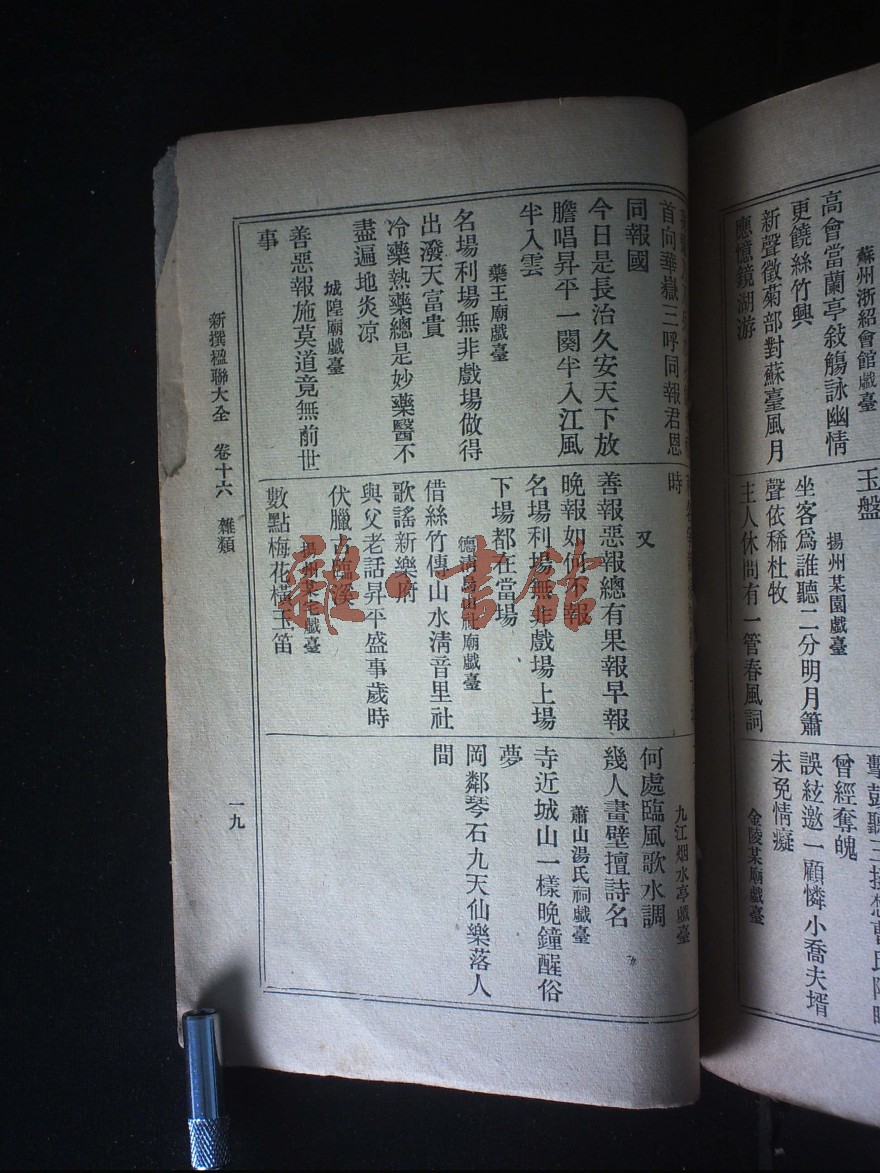 蘇州浙紹會館戲臺
高會當蘭亭敍觴詠幽情
更饒絲竹興
新聲徵菊部對蘇臺風月
應憶鏡湖游
玉盤
揚州某園戲臺
坐客爲誰聽二分明月簫
聲依稀杜牧
主人休問有一管春風詞
擊鼓聽三撾想曹氏
曾經奪魄
誤絃邀一顧憐小喬夫壻
未免情癡
金陵某廟戲臺
首向華嶽三呼同報君恩
同報國
今日是長治久安天下放
膽唱昇平一闋半入江風
半入雲
藥王廟戲臺
名場利場無非戲場做得
出潑天富貴
冷藥熱藥總是妙藥醫不
盡遍地炎凉
城隍廟戲臺
善惡報施莫道竟無前世
事
時
又
善報惡報總有果報早報
晚報如何不報
名場利場無非戲場上場
下場都在當場
德清 社廟戲臺
借絲竹傳山水清音里社
歌謠新樂府
與父老話昇平盛事歲時
伏臘古臨溪
揚州某宅戲臺
數點梅花橫玉笛
九江烟水亭戲臺
何處臨風歌水調
幾人畫壁擅詩名
蕭山湯氏祠戲臺
寺近城山一樣晚鐘醒俗
夢
岡鄰琴石九天仙樂落人
間
新撰楹聯大全 卷十六 雜類
一九
雜·書館